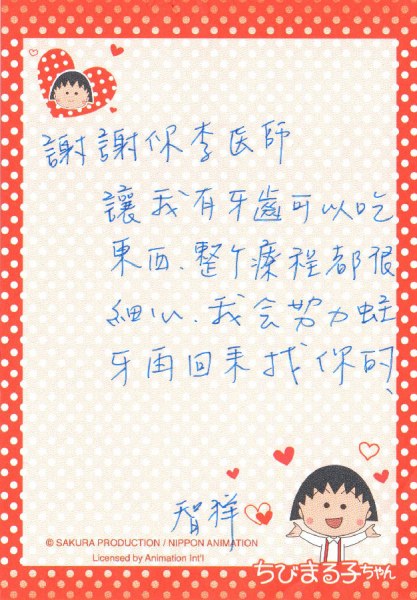 謝謝你李医師
讓我有牙齒可以吃
東西、整个療程都很
細心.我会努力蛀
牙再回來找你的、
智祥
© SAKURA PRODUCTION / NIPPON ANIMATION
Licensed by Animation Int'l
ちびまる子ちゃん